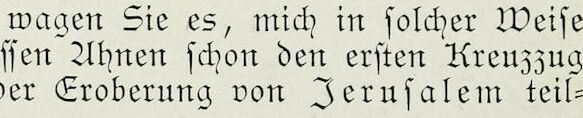 wagen Sie es, mich in solcher Weise
ssen Ahnen schon den ersten Kreuzzug
er Eroberung von Jerusalem teil=